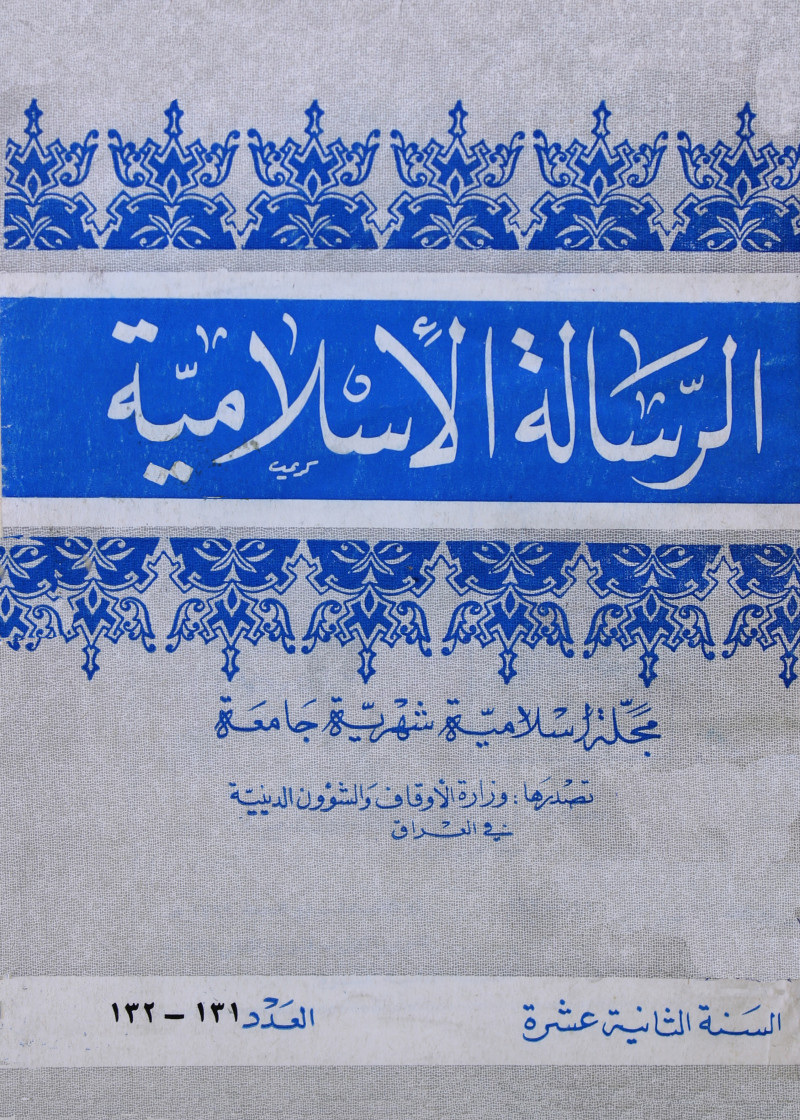 الرسالة الإسلامية
كريم
مجلة إسلامية شهرية جامعة
تصدرها: وزارة الأوقاف والشؤون الدينية
في العراق
السنة الثانية عشرة
العدد ١٣١ - ١٣٢